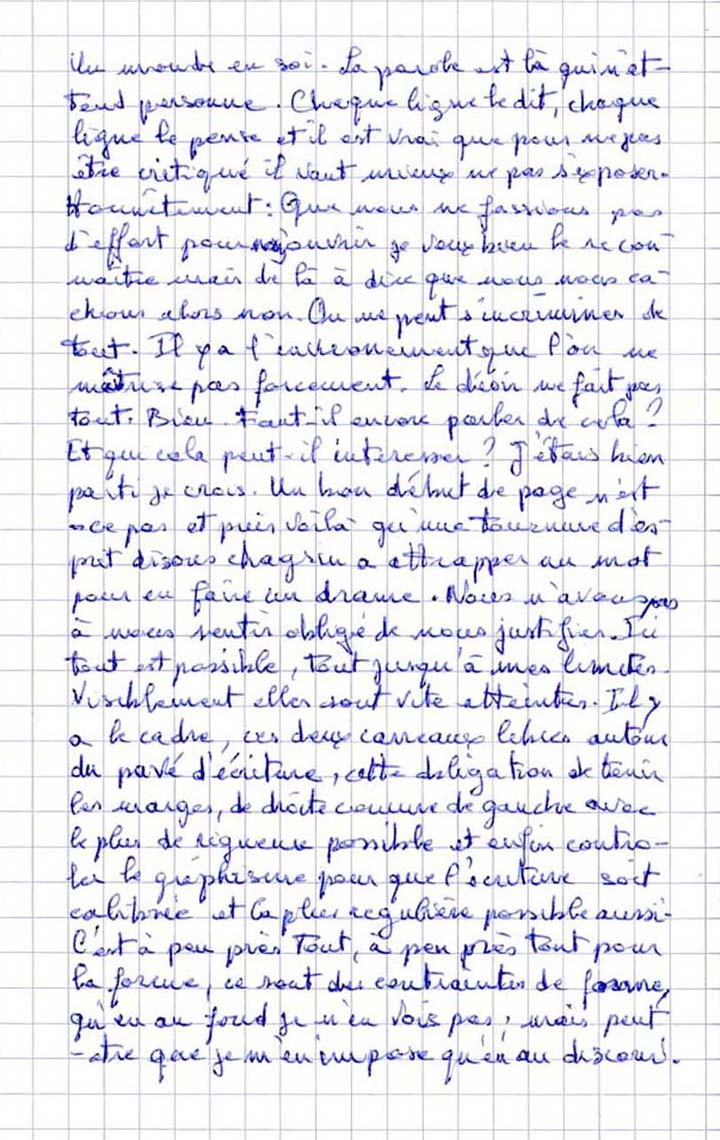 Un monde en soi. La parole est là qui n'at-
tend personne. Chaque ligne le dit, chaque
ligne le pense et il est vrai que pour ne pas
être critiqué il vaut mieux ne pas s'exposer.
Honnêtement: Que nous ne fassions pas
d'effort pour s'ouvrir je veux bien le recon-
naître mais de là à dire que nous nous ca-
chions alors non. On ne peut s'incriminer de
tout. Il y a l'environnement que l'on ne
maîtrise pas forcement. Le désir ne fait pas
tout. Bien. Faut-il encore parler de cela?
Et qui cela peut-il interesser? J'étais bien
parti je crois. Un bon début de page n'est
-ce pas et puis voilà qu'une tournure d'es-
prit disons chagrin a attrapper un mot
pour en faire un drame. Nous n'avons pas
à nous sentir obligé de nous justifier. Ici
tout est possible, tout jusqu'à mes limites.
Visiblement elles sont vite atteintes. Il y
a le cadre, ces deux carreaux libres autour
du pavé d'écriture, cette obligation de tenir
les marges, de droite comme de gauche avec
le plus de rigueur possible et enfin contro-
ler le graphisme pour que l'écriture soit
calibrée et la plus regulière possible aussi.
C'est à peu près tout, à peu près tout pour
la forme, ce sont des contraintes de forme,
qu'en au fond je n'en vois pas, mais peut
-être que je m'en impose qu'en au discours.